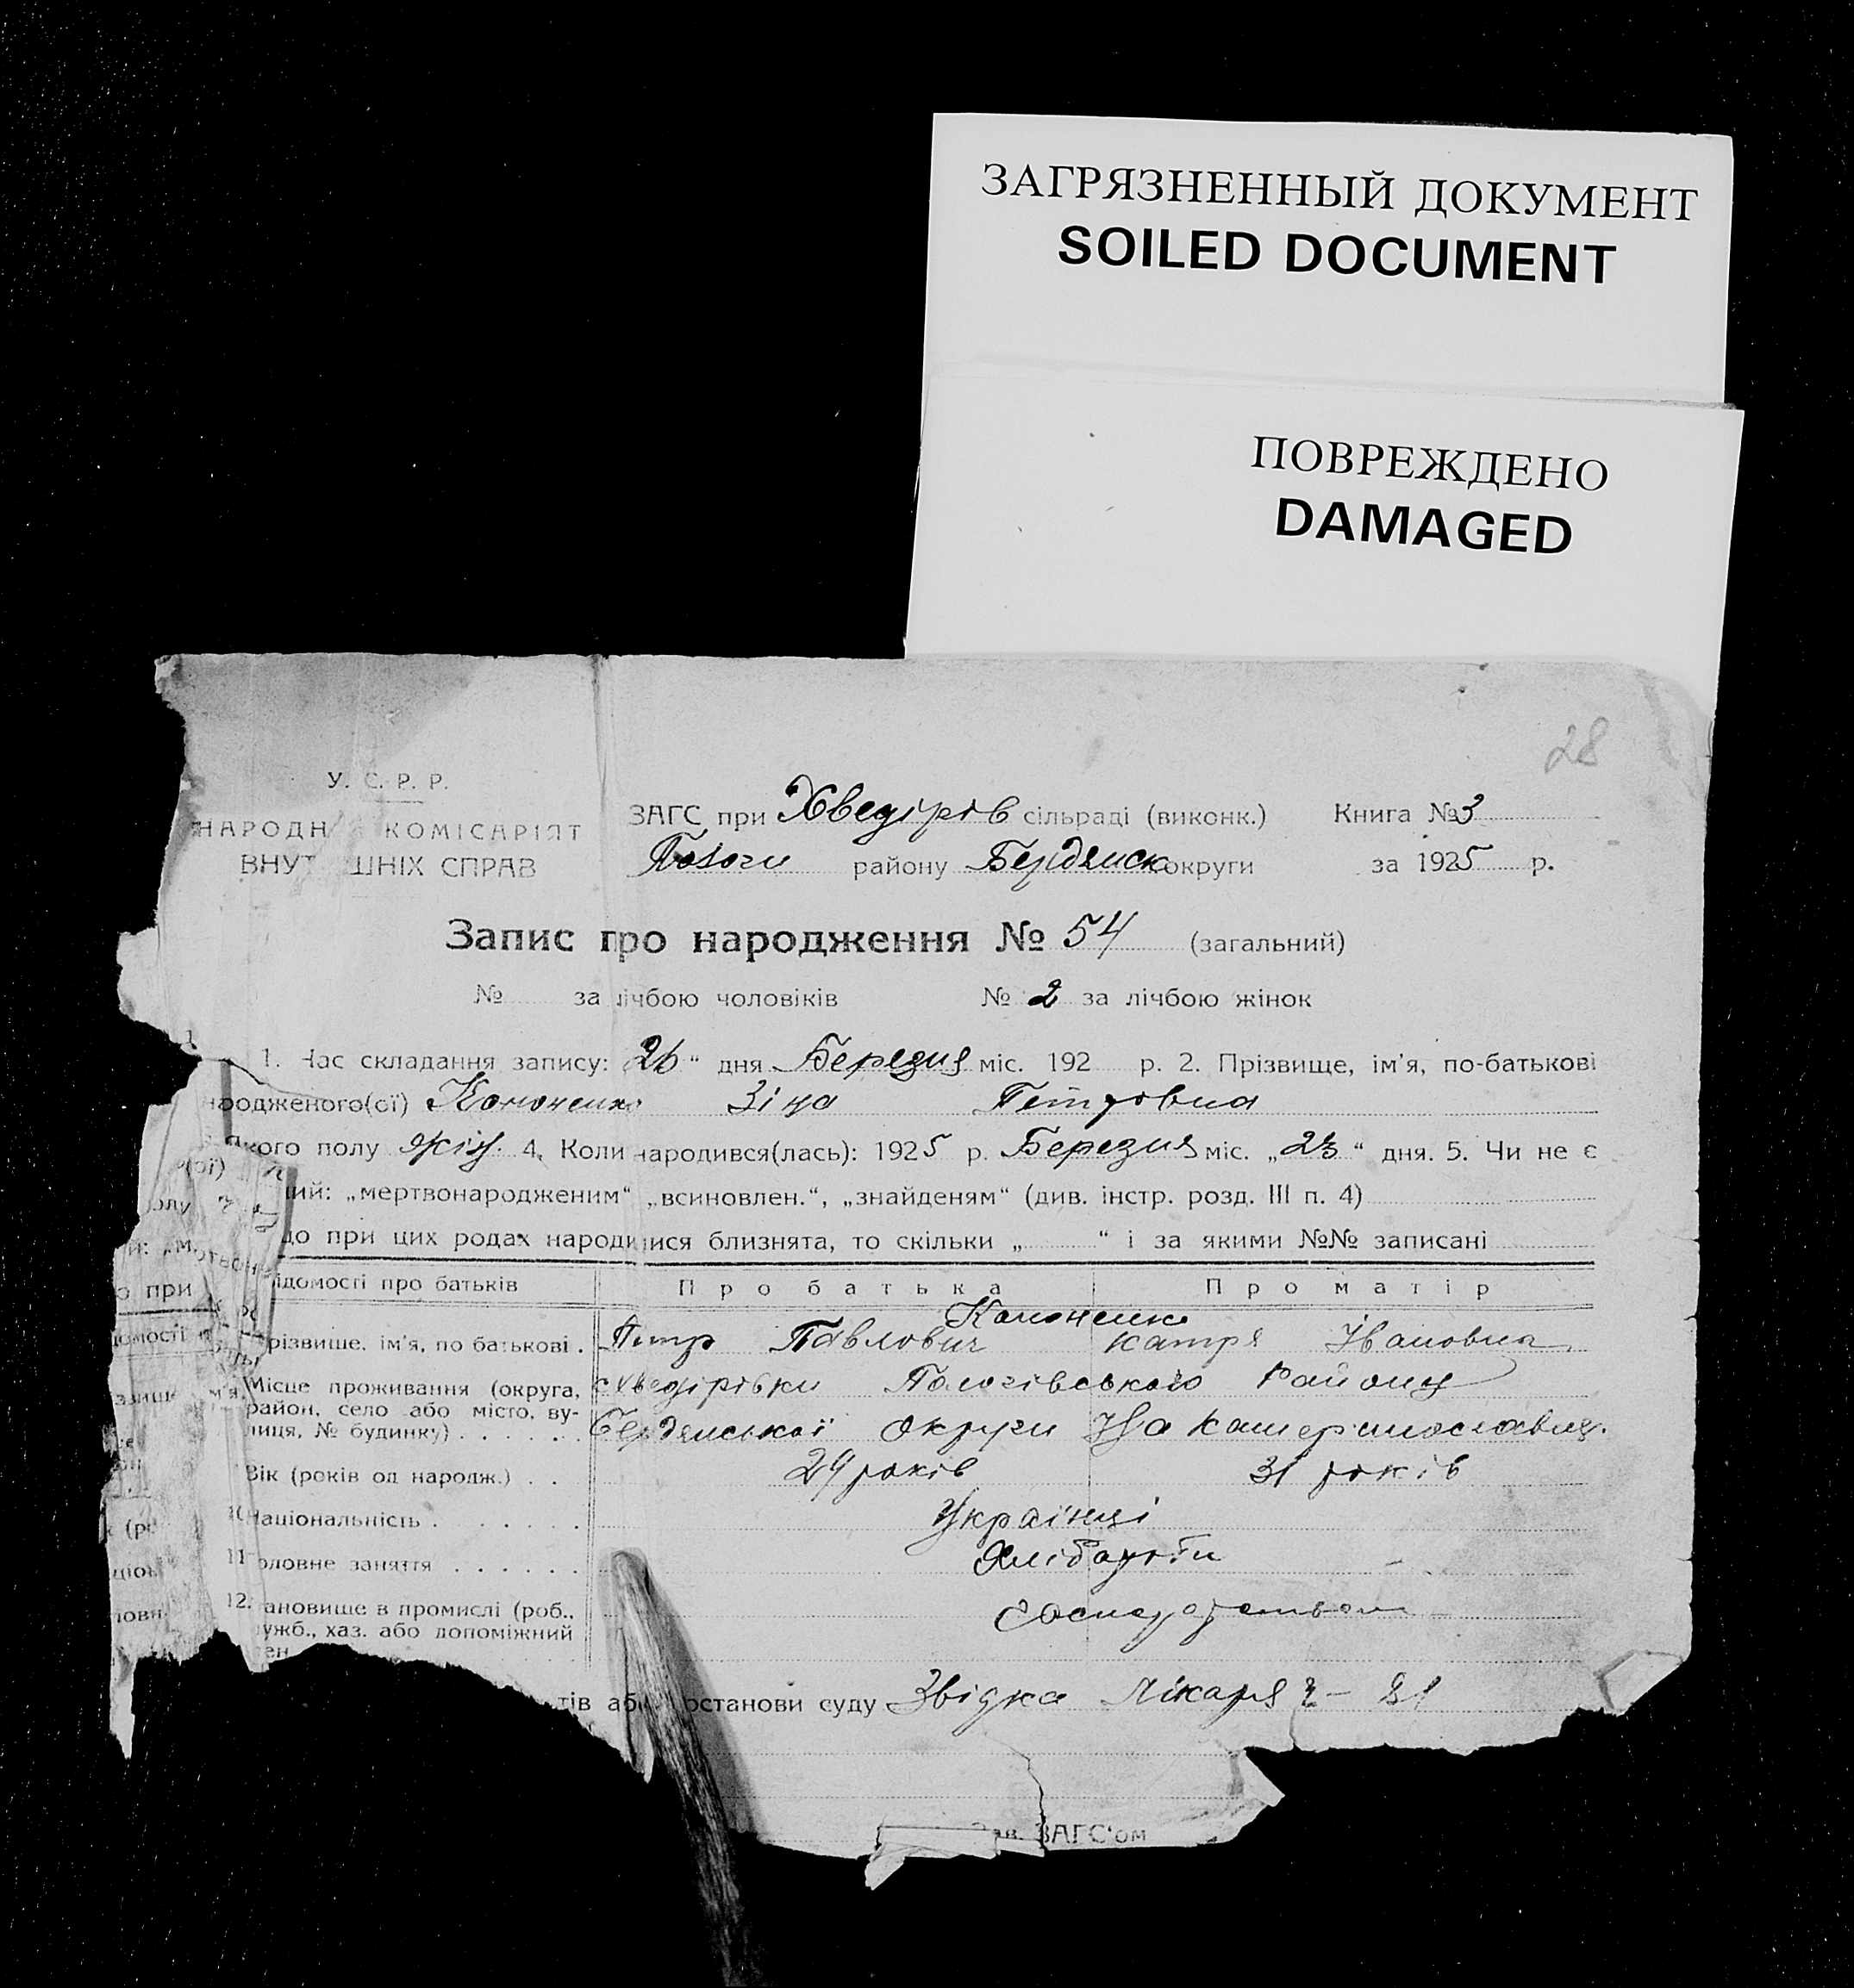 ЗАГРЯЗНЕННЫЙ ДОКУМЕНТ
SOILED DOCUMENT
ПОВРЕЖДЕНО
DAMAGED
28
У. С. Р. Р.
НАРОДН КОМІСАРІЯТ
ВНУТ ШНІХ СПРАВ
ЗАГС при Хведірів сільраді (виконк.) Книга № 3
району Бердянск округи за 1925 р.
Запис про народження № 54 (загальний)
№ за лічбою чоловіків № 2 за лічбою жінок
1. Час складання запису: 26 “ дня Березня міс. 192 р. 2. Прізвище, ім’я, по-батькові
народженого(ої) Кононенко Зіна Петровна
якого полу жін. 4. Коли народився(лась): 1925 р. Березня міс. „ 23 “ дня. 5. Чи не є
ий: „мертвонародженим“ „всиновлен.“, „знайденям“ (див. інстр. розд. III п. 4)
що при цих родах народилися близнята, то скільки „ “ і за якими №№ записані
ідомості про батьків Про батька Про матір
Кононенко
різвише, ім’я, по батькові . Петр Павлович Катря Івановна
Місце проживання (округа, Хведірівки Пологівського Району
район, село або місто, ву-
лиця, № будинку) . . . . . . Бердянської Округи На Катеринославщ.
Вік (років од народж.) . . 29 років 31 років
10 Національність . . . . . . Українці
11 оловне заняття . . . . . . Хлібороби
12. ановище в промислі (роб.,
ужб., хаз. або допоміжний
ен
тів або останови суду Звідка Лікаря
Зав. ЗАГС'ом